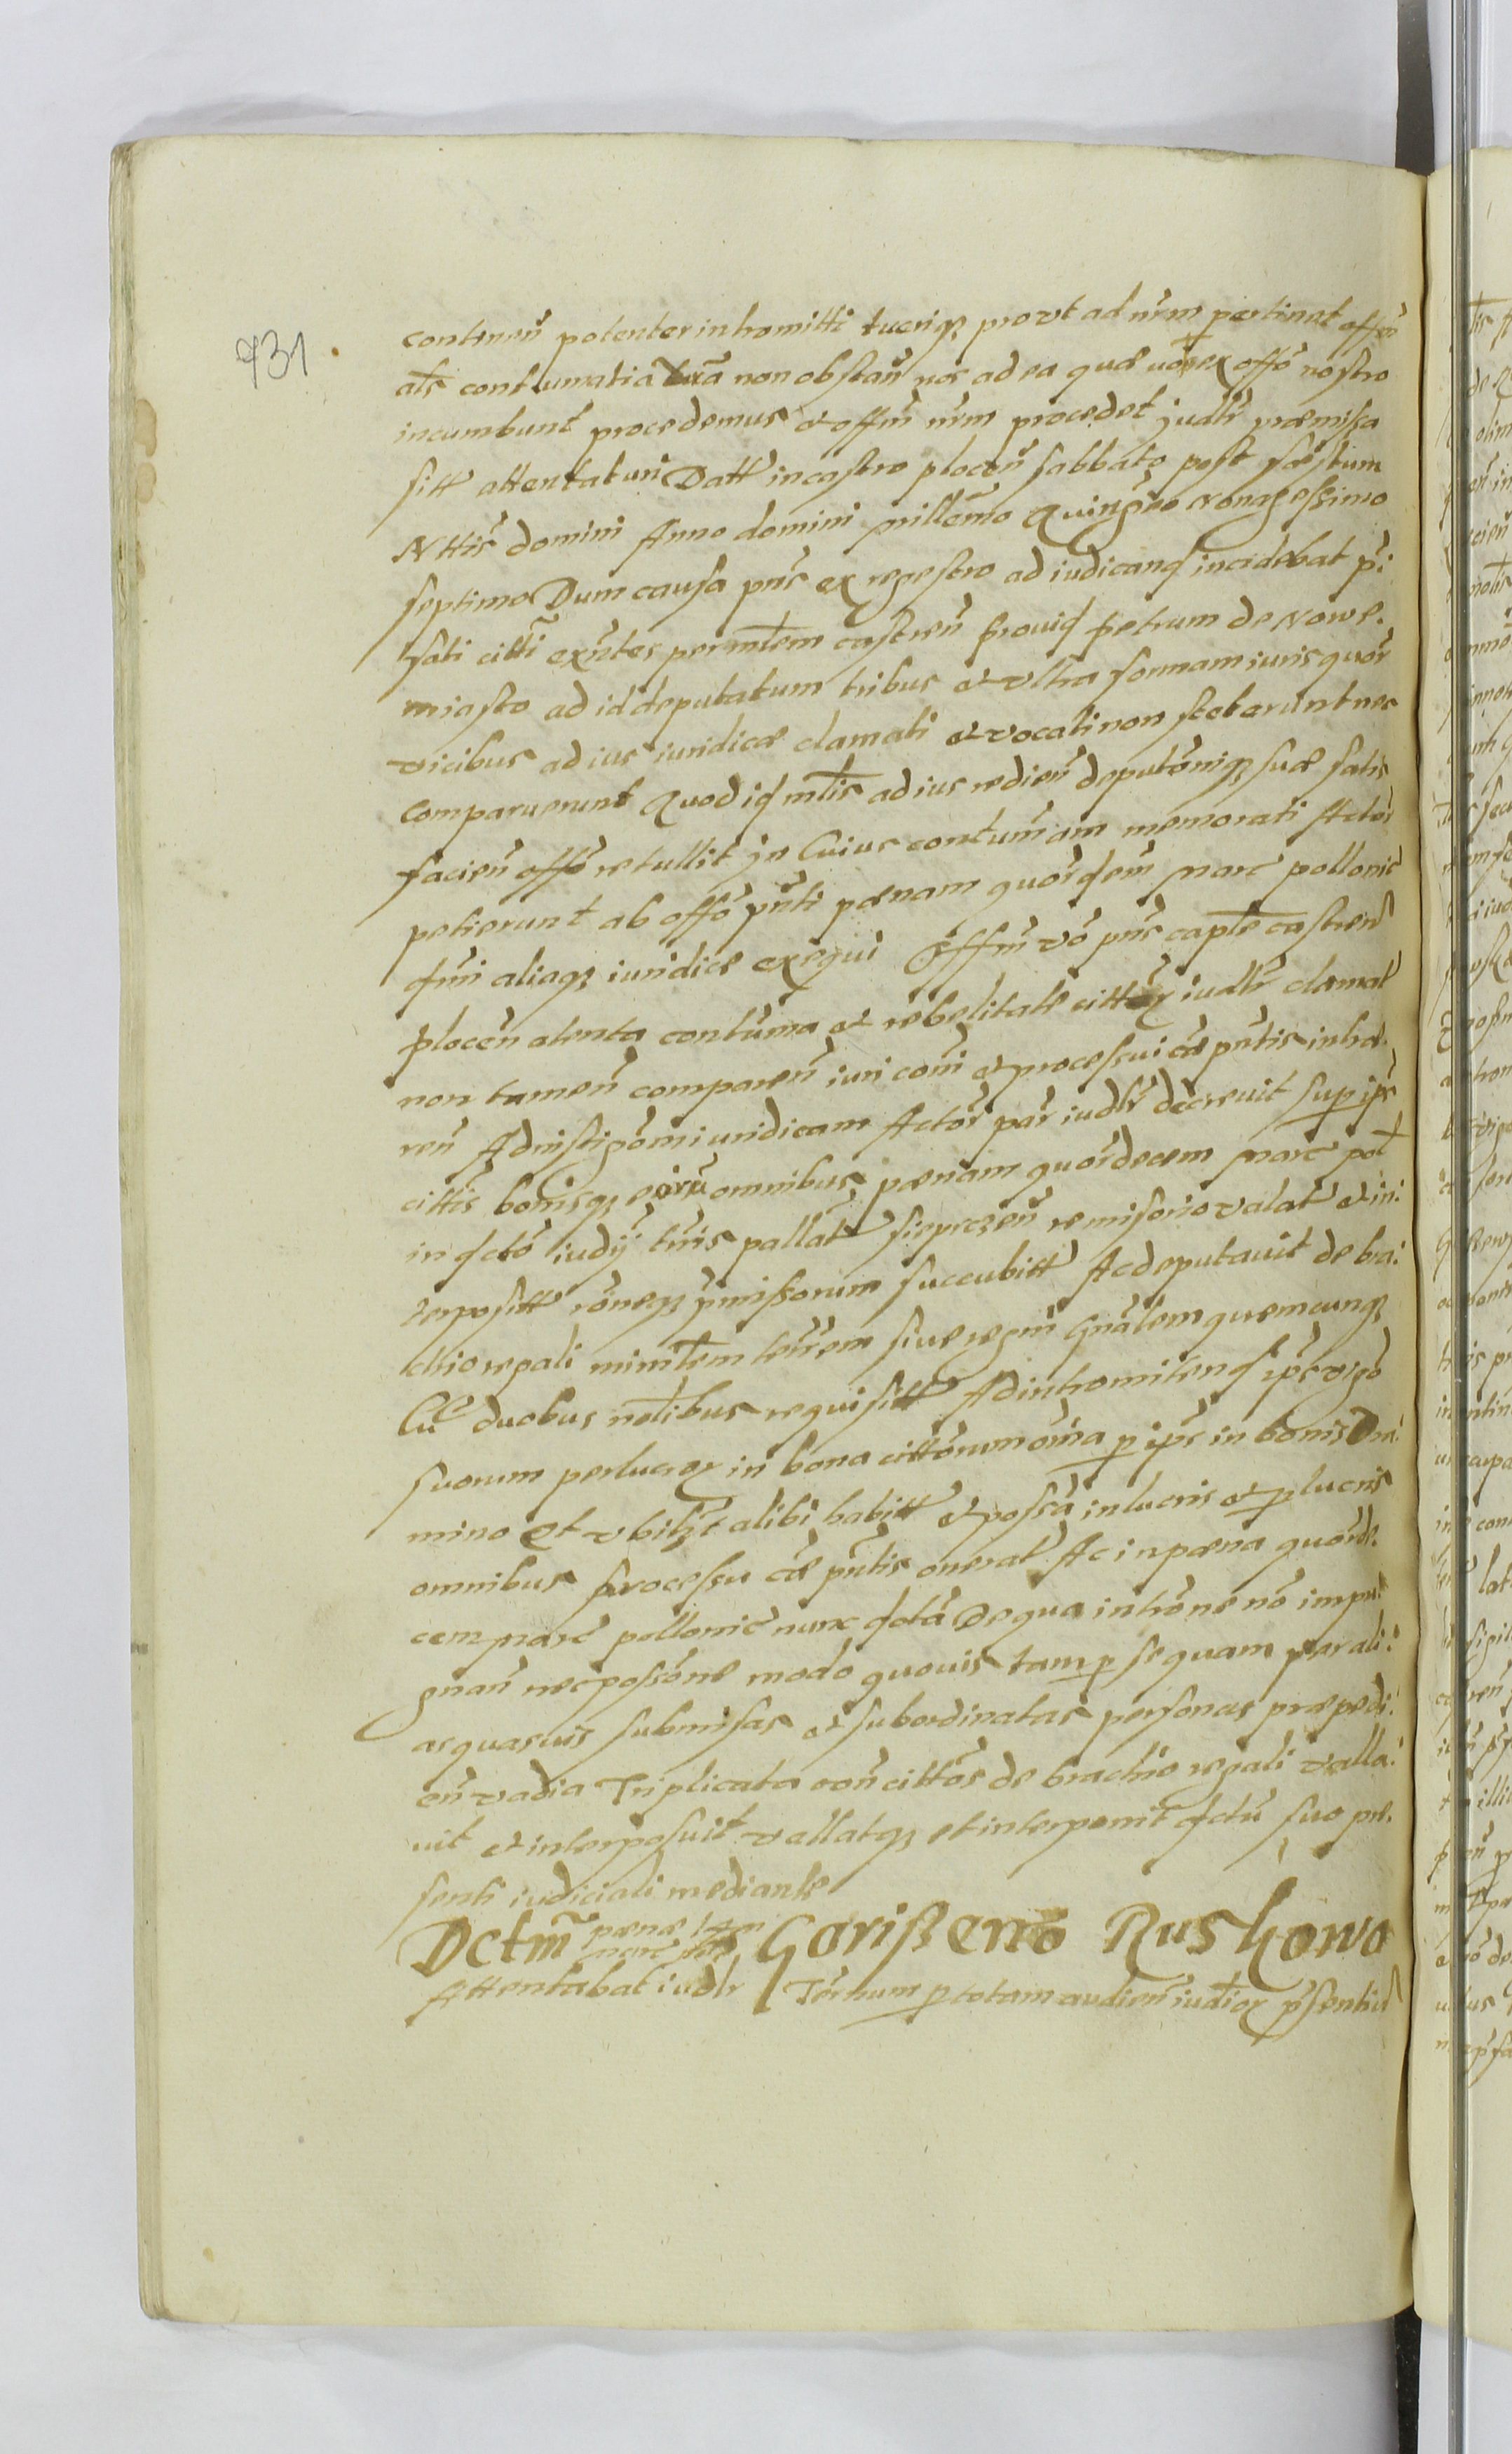 431
contineñ potenter intromitti tueriqz provt ad nrm pertinet offm
als contumatia vra non obstañ nos ad ea quæ ex offo nostro
incumbunt procedemus et offm nrm procedet judlr præmissa
sitt attentaturi Datt in castro plocen sabbato post festum
Nttis domini Anno domini millemo Quingeo Nonagessimo
septimo Dum causa pns ex regestro ad iudicand incidebat p̃:
fati citti exntes per mtlem castren provid petrum de Nowe.
miasto ad id deputatum tribus et vltra formam iuris quor
vicibus ad ius iuridicæ clamati et vocati non steterunt nec
comparuerunt Quod id mtlis ad ius redieñ deputoniqz suæ satis
facieñ offo retullit In Cuius contumam memorati Actor
petierunt ab offo pñti pænam quordem marc pollonic
dm̃i aliaqz iuridicæ exequi Offm vo pns caple castren
plocen atenta contuma et rebelitate cittor iudlr clamat
non tameñ compareñ iuri com̃i et processui cæ pñtis inhæ.
reñ Ad instigom iuridicam Actor par iudlr decreuit sup ips
cittis bonisqz eorũ omnibus pænam quordecem marc pol
in dcto iudÿ trmis pallat remisorio valat et in:
terposit roneqz pmissorum succubitt Ac deputauit de bra:
chio regali mimtlem terrem siue regni Gnalem quemcunqz
Cũ duobus noblibus requisitt Ad intromitend ips vigo
suorum perlucror in bona cittorum omia p ips in bonis Do:
mino et vbilzt alibi habitt et possa in lucris et p lucris
omnibus processu cæ pñtis onerat Ac in pæna quorde.
cem marc pollonic nunc dcta De qua introne no impu:
gnañ nec possone modo quouis tam p se quam par ali:
as quasuis submisas et subordinatas personas præpedi:
eñ vadia Triplicata con cittos de brachio regali valla:
uit et interposuit vallatqz et interponit dctũ suo præ.
senti iudiciali mediante
Dctm̃ pænæ 14em marc pol Goriszewo Ruskowo
Attentabat iudlr Termum p totam audieñ iudior psentiũ